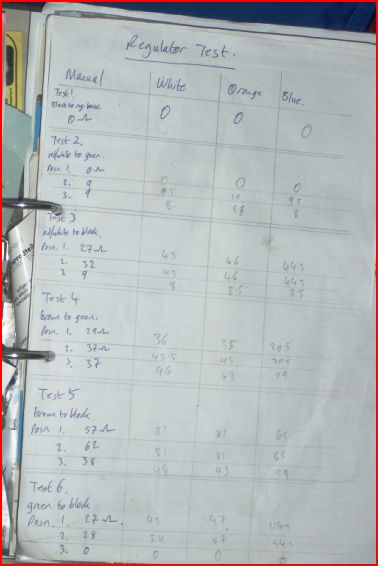 Regulator Test.
Manual White Orange Blue.
Test 1.
Black to reg. base
0 Ω 0 0 0
Test 2.
w/white to green.
Posn. 1. 0 Ω 0 0 0
2. 9 8.5 10 9.5
3. 9 8 8.5 8
Test 3
w/white to black.
Posn. 1. 27 Ω 45 46 44.5
2. 32 45 46 44.5
3 9 8 8.5 8.5
Test 4
brown to green.
Posn. 1. 29 Ω 36 35 20.5
2. 37 Ω 45.5 45 20.5
3. 37 44 43 49
Test 5
brown to black.
Posn 1. 57 Ω 81 81 65
2. 62 81 81 65
3. 38 44 43 49
Test 6.
green to black
Posn. 1. 27 Ω. 45 47 44.5
2. 28 54 57 54.5
3. 0 0 0 0